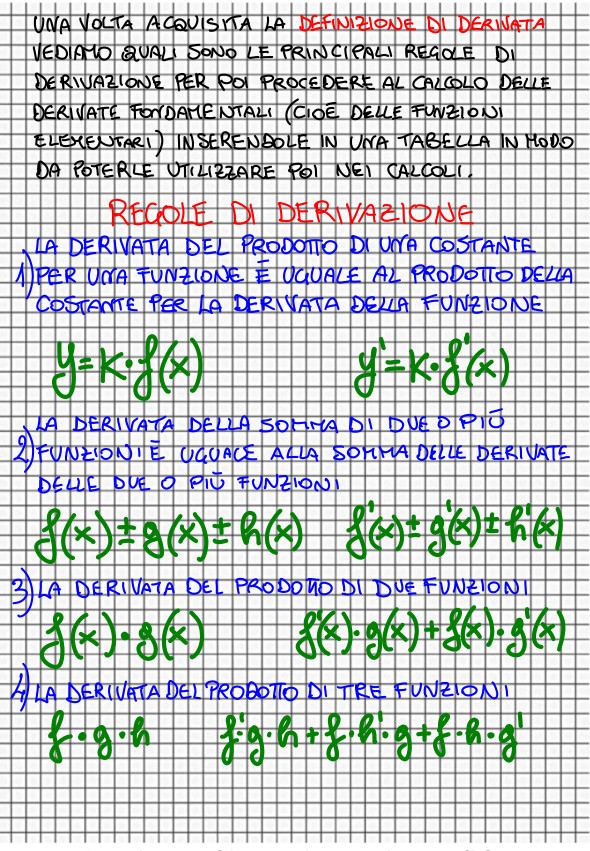 UNA VOLTA ACQUISITA LA DEFINIZIONE DI DERIVATA
VEDIAMO QUALI SONO LE PRINCIPALI REGOLE DI
DERIVAZIONE PER POI PROCEDERE AL CALCOLO DELLE
DERIVATE FONDAMENTALI (CIOÈ DELLE FUNZIONI
ELEMENTARI) INSERENDOLE IN UNA TABELLA IN MODO
DA POTERLE UTILIZZARE POI NEI CALCOLI.
REGOLE DI DERIVAZIONE
LA DERIVATA DEL PRODOTTO DI UNA COSTANTE
1) PER UNA FUNZIONE È UGUALE AL PRODOTTO DELLA
COSTANTE PER LA DERIVATA DELLA FUNZIONE
y=k·f(x) y'=k·f'(x)
LA DERIVATA DELLA SOMMA DI DUE O PIÙ
2) FUNZIONI È UGUALE ALLA SOMMA DELLE DERIVATE
DELLE DUE O PIÙ FUNZIONI
f(x)±g(x)±h(x) f'(x)±g'(x)±h'(x)
3) LA DERIVATA DEL PRODOTTO DI DUE FUNZIONI
f(x)·g(x) f'(x)·g(x)+f(x)·g'(x)
4) LA DERIVATA DEL PRODOTTO DI TRE FUNZIONI
f·g·h f'·g·h+f·h'·g+f·h·g'